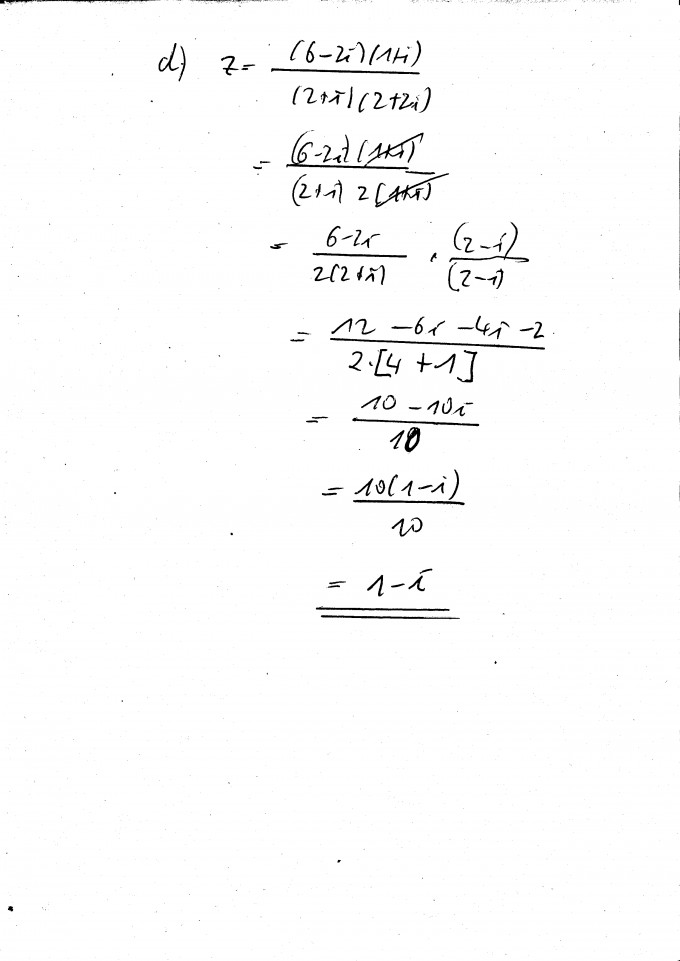 d) z = (6-2i)(1+i) / (2+i)(2+2i)
= (6-2i)(1+i) / (2+i) 2(1+i)
= 6-2i / 2(2+i) · (2-i) / (2-i)
= 12 -6i -4i -2 / 2·[4 +1]
= 10 -10i / 10
= 10(1-i) / 10
= 1-i